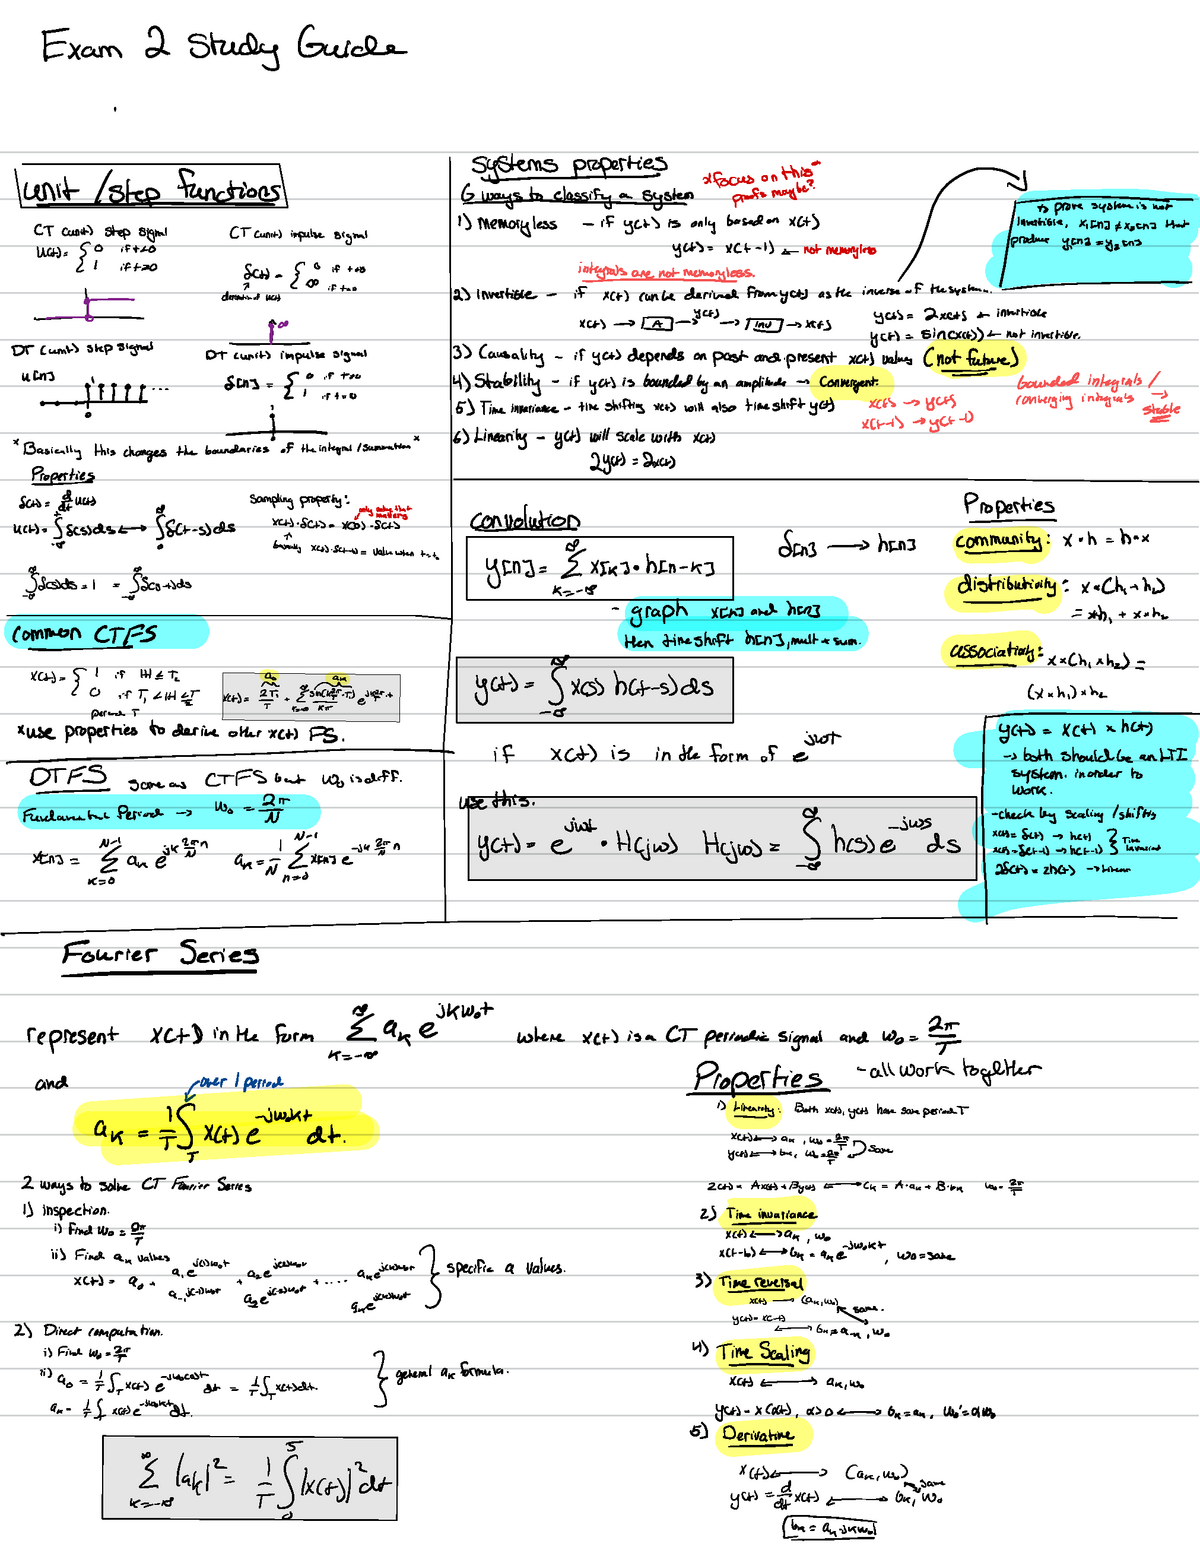 Exam 2 Study Guide
Unit / Step functions
CT (unit) step signal
u(t) = { 0 if t<0
1 if t>0
CT (unit) impulse signal
δ(t) = { 0 if t≠0
∞ if t=0
derivative of u(t)
DT (unit) step signal
u[n]
DT (unit) impulse signal
δ[n] = { 0 if t≠0
1 if t=0
* Basically this changes the boundaries of the integral / summation *
Properties
δ(t) = d/dt u(t)
u(t) = ∫ δ(s)ds ⟷ ∫ δ(t-s)ds
∫ δ(s)ds = 1 = ∫
Sampling property:
only value that matters
x(t)·δ(t) = x(0)·δ(t)
basically
= value when
Common CTFS
x(t) = { 1 if |t| < T₁
0 if T₁ < |t| < T/2
period T
x(t) = 2T₁/T +
a₀
aₖ
*use properties to derive other x(t) FS.
DTFS same as CTFS but ω₀ is diff.
Fundamental Period → ω₀ = 2π/N
x[n] = Σ_{k=0}^{N-1} aₖ e^{jk 2π/N n}
aₖ = 1/N Σ_{n=0}^{N-1} x[n] e^{-jk 2π/N n}
Systems properties
6 ways to classify a system
*focus on this
proofs maybe?
1) Memoryless – if y(t) is only based on x(t)
y(t) = x(t-1) ← not memoryless
integrals are not memoryless.
2) Invertible – if x(t) can be derived from y(t) as the inverse of the system.
x(t) → A → y(t) → INV → x(t)
y(t) = 2x(t) ← invertible
y(t) = sin(x(t)) ← not invertible.
to prove system is not
invertible, x₁[n] ≠ x₂[n] that
produce y₁[n] = y₂[n]
3) Causality – if y(t) depends on past and present x(t) values (not future)
4) Stability – if y(t) is bounded by an amplitude → Convergent.
bounded integrals /
converging integrals → stable
5) Time invariance – time shifting x(t) will also time shift y(t)
x(t) → y(t)
x(t-1) → y(t-1)
6) Linearity – y(t) will scale with x(t)
2y(t) = 2x(t)
Convolution
y[n] = Σ_{k=-∞}^{∞} x[k]·h[n-k]
δ[n] → h[n]
- graph x[n] and h[n]
then time shift h[n], mult + sum.
y(t) = ∫_{-∞}^{∞} x(s) h(t-s) ds
if x(t) is in the form of e^{jωt}
use this.
y(t) = e^{jωt} · H(jω) H(jω) = ∫_{-∞}^{∞} h(s) e^{-jωs} ds
Properties
community: x * h = h * x
distributivity: x * (h₁ + h₂)
= x*h₁ + x*h₂
associativity: x * (h₁ * h₂) =
(x * h₁) * h₂
y(t) = x(t) * h(t)
→ both should be an LTI
system. in order to
work.
- check by scaling / shifting
x(t) = δ(t) → h(t)
x(t) = δ(t-1) → h(t-1) } Time Invariant
2δ(t) = 2h(t) → Linear
Fourier Series
represent x(t) in the form Σ_{k=-∞}^{∞} aₖ e^{jkω₀t} where x(t) is a CT periodic signal and ω₀ = 2π/T
and
over 1 period
aₖ = 1/T ∫_T x(t) e^{-jω₀kt} dt.
2 ways to solve CT Fourier Series
1) inspection.
i) Find ω₀ = 2π/T
ii) Find aₖ values
x(t) = a₀ + a₁e^{j(1)ω₀t} + a₂e^{j(2)ω₀t} + .... aₖe^{j(k)ω₀t}
a₋₁e^{j(-1)ω₀t}
} specific a values.
2) Direct computation.
i) Find ω₀ = 2π/T
ii) a₀ = 1/T ∫_T x(t) e^{-jω₀(0)t} dt = 1/T ∫_T x(t) dt.
aₖ = 1/T ∫_T x(t) e^{-jω₀kt} dt.
} general aₖ formula.
Σ_{k=-∞}^{∞} |aₖ|² = 1/T ∫_0^5 |x(t)|² dt
Properties - all work together
1) Linearity: Both x(t), y(t) have same period T
x(t) ⟷ aₖ, ω₀ = 2π/T
y(t) ⟷ bₖ, ω₀ = 2π/T
same
z(t) = Ax(t) + By(t) ⟷ cₖ = A·aₖ + B·bₖ ω₀ = 2π/T
2) Time invariance
x(t) ⟷ aₖ, ω₀
x(t-b) ⟷ bₖ = aₖe^{-jω₀kt}, ω₀ = same
3) Time reversal
x(t) → (aₖ, ω₀)
same.
y(t) = x(-t)
⟷ bₖ = a₋ₖ, ω₀
4) Time Scaling
x(t) ⟷ aₖ, ω₀
y(t) = x(αt), α>0 ⟷ bₖ = aₖ, ω₀' = αω₀
5) Derivative
x(t) ⟷ (aₖ, ω₀)
same
y(t) = d/dt x(t) ⟷ bₖ, ω₀
bₖ = aₖ·jkω₀